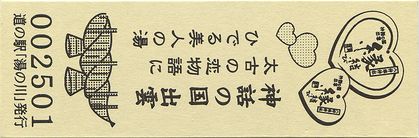 縁結び
縁結び
神話の国出雲
太古の恋物語に
ひでる美人の湯
002501
道の駅「湯の川」発行